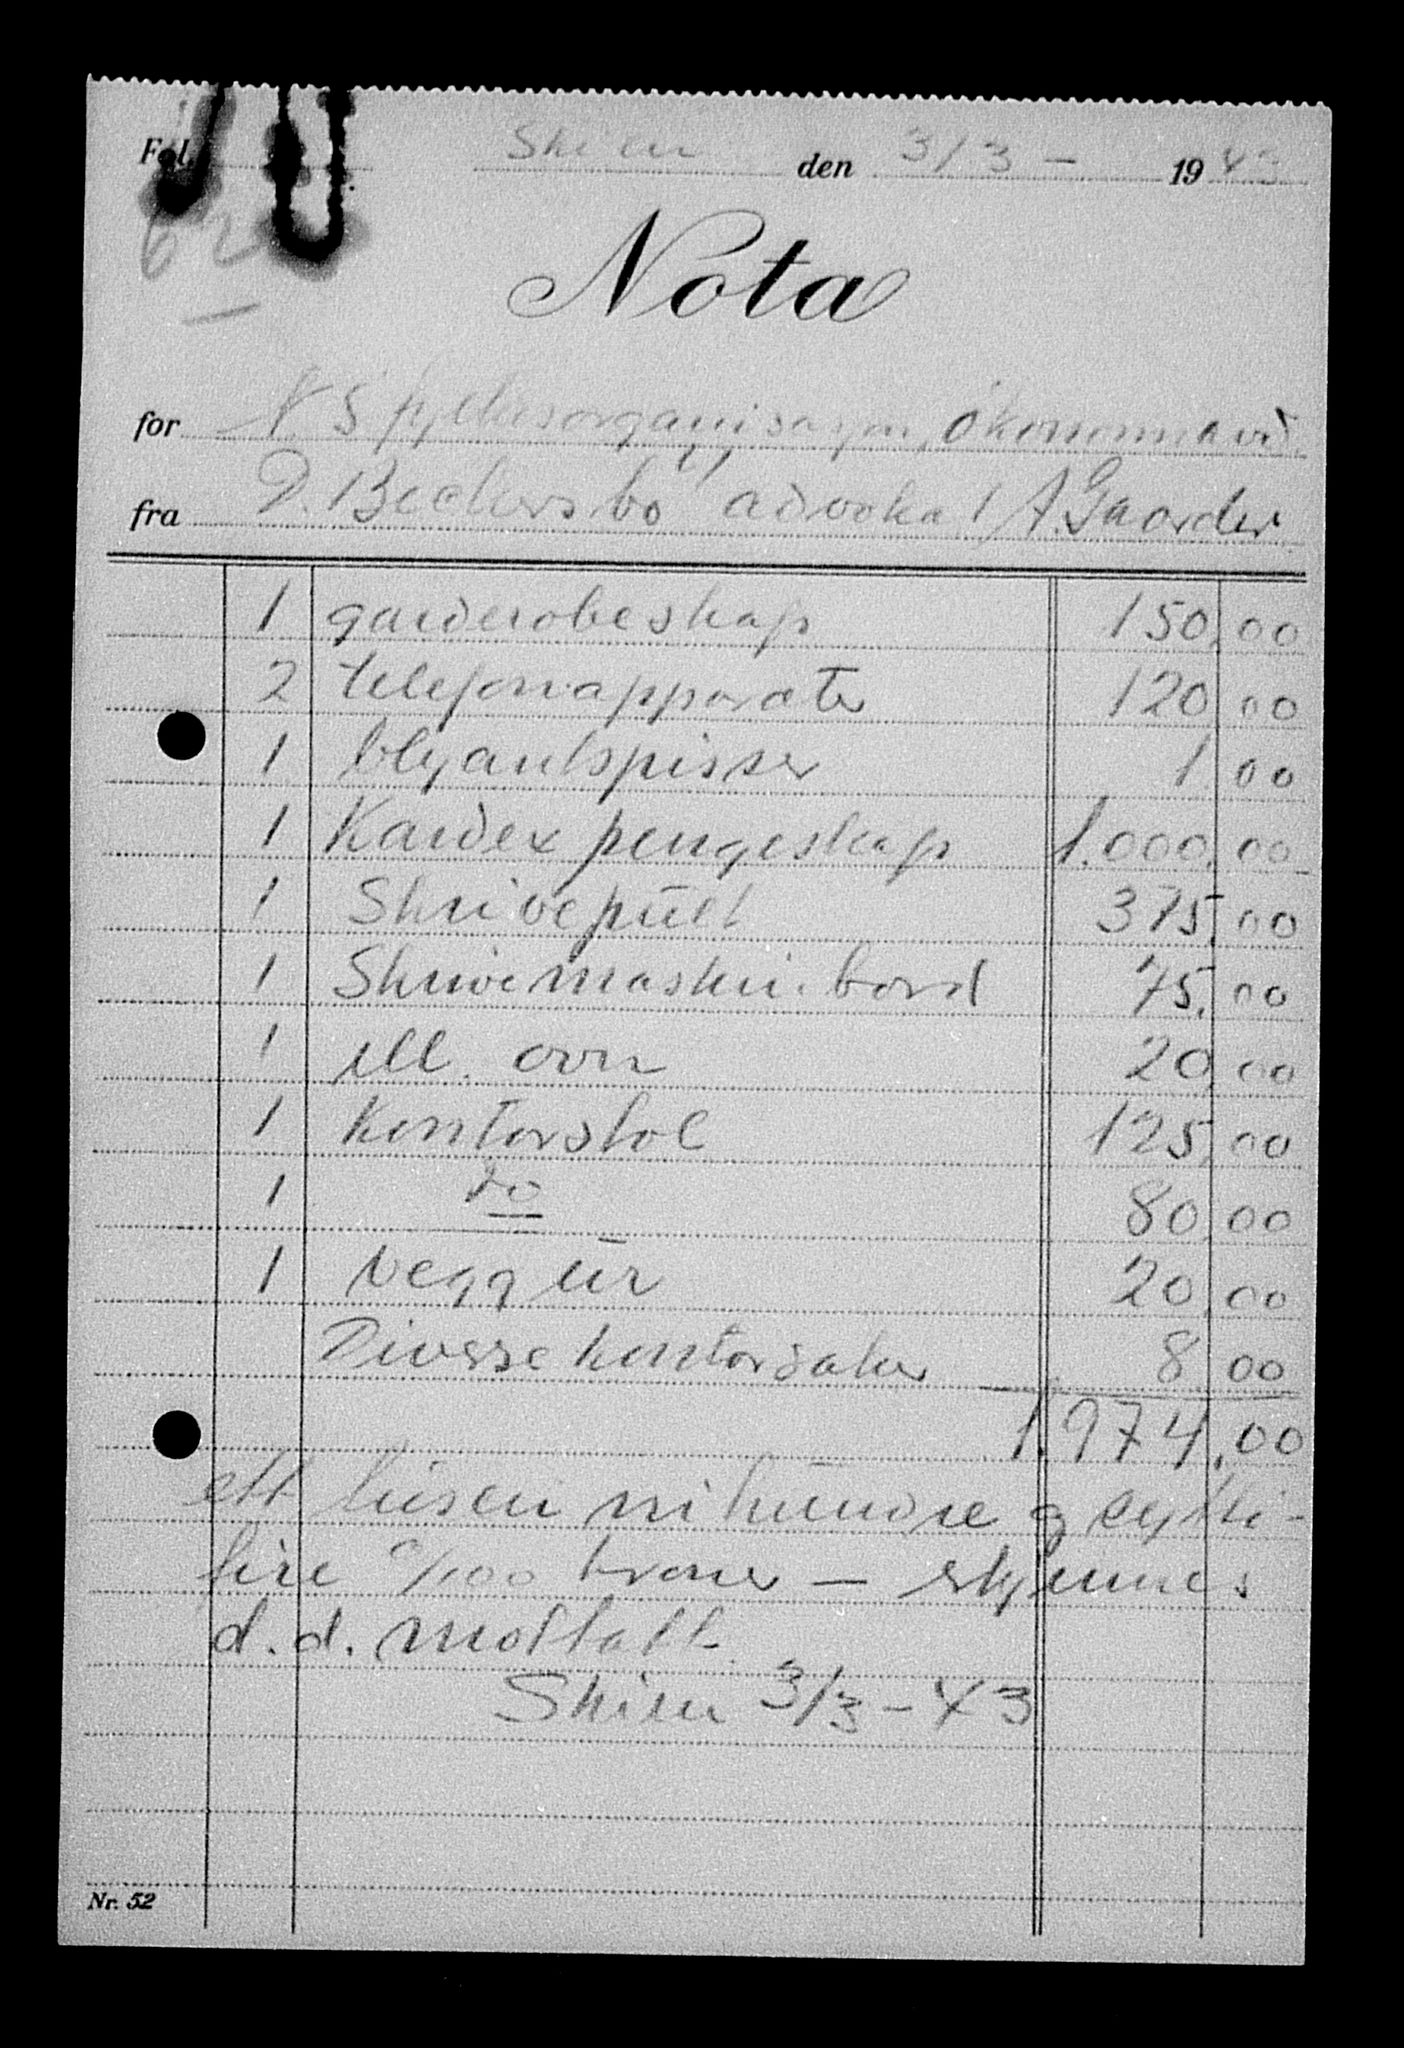 Fol.
Skien den 3/3 - 1943
62
Nota
for N.S fylkesorganisasjon, økonomiavd.
fra D. Beckersbo v/ advokat A. Gaarder
1 garderobeskap 150,00
2 telefonapparater 120,00
1 blyantspisser 1,00
1 Kardex pengeskap 1.000,00
1 Skrivepült 375,00
1 Skrivemaskin.bord 75,00
1 ell. ovn 20,00
1 kontorstol 125,00
1 do 80,00
1 veggür 20,00
Diverse kontorsaker 8,00
1.974,00
ett tüsen nihündre og sytti-
fire 0/100 kroner — erkjennes
d.d. mottatt.
Skien 3/3-43
Nr. 52